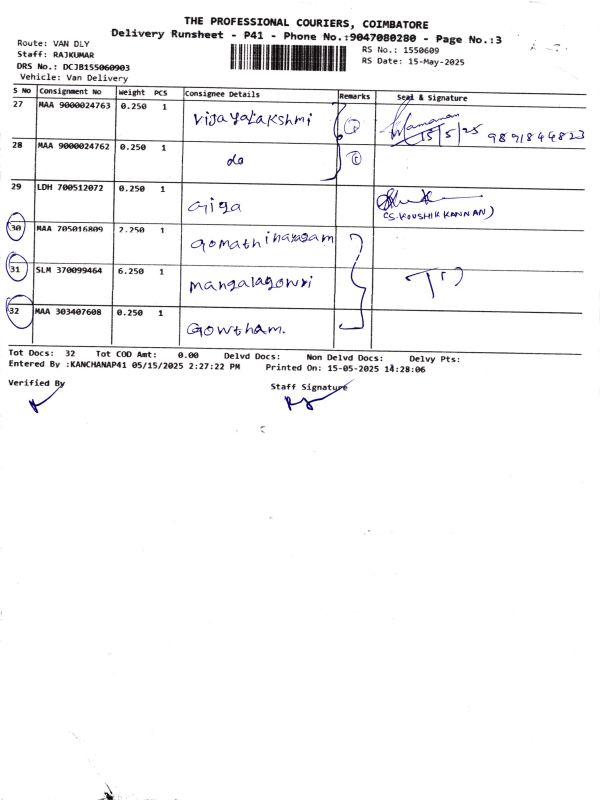 THE PROFESSIONAL COURIERS, COIMBATORE
Delivery Runsheet - P41 - Phone No.:9047080280 - Page No.:3
Route: VAN DLY
RS No.: 1550609
Staff: RAJKUMAR
RS Date: 15-May-2025
DRS No.: DCJB155060903
Vehicle: Van Delivery
S No Consignment No Weight PCS Consignee Details Remarks Seal & Signature
27 MAA 9000024763 0.250 1 Vijayalakshmi 15/5/25 9871844823
28 MAA 9000024762 0.250 1 do
29 LDH 700512072 0.250 1 Giga (S.KOUSHIK KANNAN)
30 MAA 705016809 2.250 1 Gomathinayagam
31 SLM 370099464 6.250 1 mangalagowri
32 MAA 303407608 0.250 1 Gowtham.
Tot Docs: 32 Tot COD Amt: 0.00 Delvd Docs: Non Delvd Docs: Delvy Pts:
Entered By :KANCHANAP41 05/15/2025 2:27:22 PM Printed On: 15-05-2025 14:28:06
Verified By Staff Signature